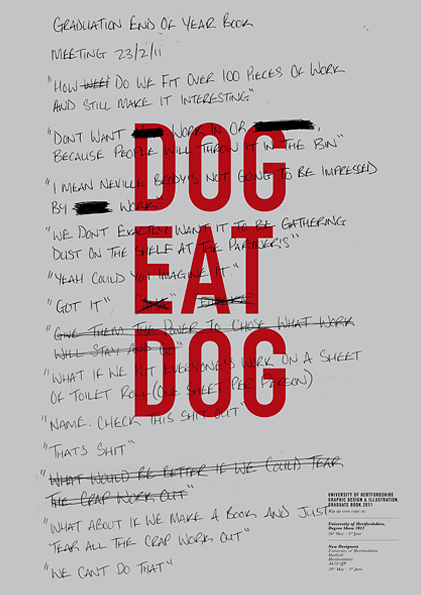 GRADUATION END OF YEAR BOOK
MEETING 23/2/11
"HOW WELL DO WE FIT OVER 100 PIECES OF WORK
AND STILL MAKE IT INTERESTING"
"DONT WANT WORK IN OR
BECAUSE PEOPLE WILL THROW IT IN THE BIN"
"I MEAN NEVILLE BRODY'S NOT GOING TO BE IMPRESSED
BY WORK"
"WE DONT EXACTLY WANT IT TO BE GATHERING
DUST ON THE SHELF AT THE PARTNER'S"
"YEAH COULD YOU IMAGINE IT"
"GOT IT"
"GIVE THEM THE POWER TO CHOSE WHAT WORK
WILL STAY AND GO"
"WHAT IF WE PUT EVERYONE'S WORK ON A SHEET
OF TOILET ROLL (ONE SHEET PER PERSON)
"NAME: CHECK THIS SHIT OUT"
"THATS SHIT"
"WHAT WOULD BE BETTER IF WE COULD TEAR
THE CRAP WORK OUT"
"WHAT ABOUT IF WE MAKE A BOOK AND JUST
TEAR ALL THE CRAP WORK OUT"
"WE CANT DO THAT"
DOG
EAT
DOG
UNIVERSITY OF HERTFORDSHIRE
GRAPHIC DESIGN & ILLUSTRATION.
GRADUATE BOOK 2011
Rip up your copy at:
University of Hertfordshire,
Degree Show 2011
New Designers
University of Hertfordshire
Hatfield
Hertfordshire